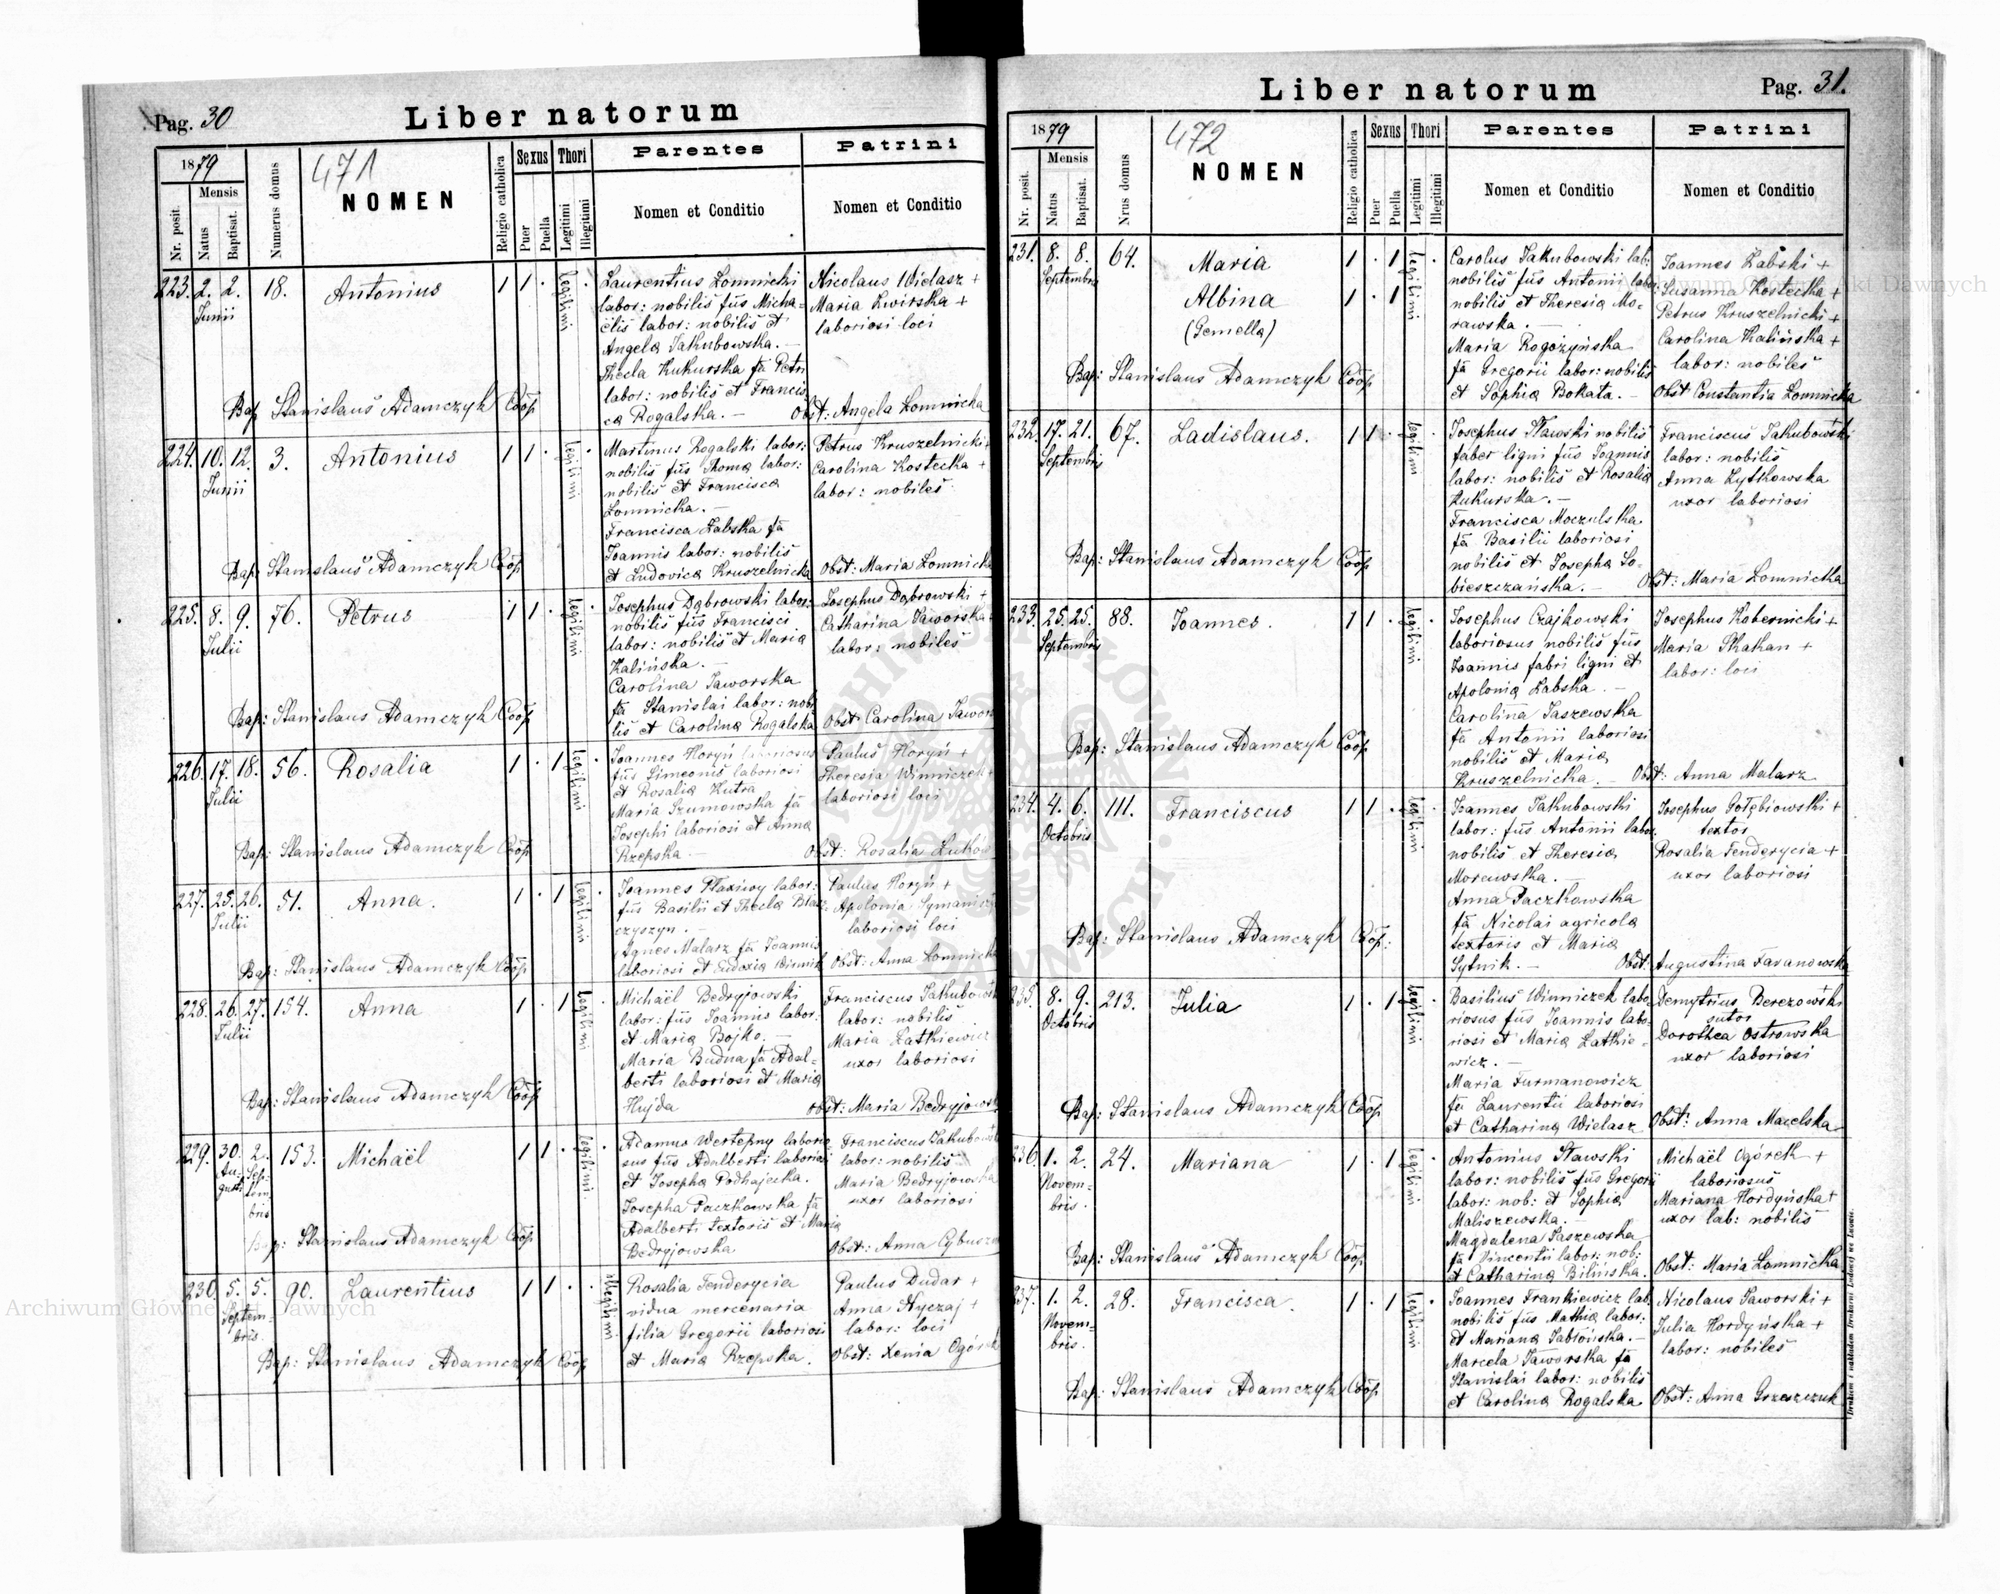 Pag. 30
Liber natorum
1879
471
Nr. posit.
Mensis
Natus
Baptisat.
Numerus domus
NOMEN
Religio catholica
Sexus
Puer
Puella
Thori
Legitimi
Illegitimi
Parentes
Nomen et Conditio
Patrini
Nomen et Conditio
223. 2. 2. Junii 18. Antonius 1 1 . Legitimi .
Laurentius Lomnicki
labor: nobilis fus Micha=
ëlis labor: nobilis et
Angela Jakubowska. —
Thecla Kukurska fa Petri
labor: nobilis et Francis
ca Rogalska. —
Nicolaus Wielasz +
Maria Zwirska +
laboriosi loci
Obst: Angela Lomnicka
Bap Stanislaus Adamczyk Coop
224. 10. 12. Junii 3. Antonius 1 1 . Legitimi .
Martinus Rogalski labor:
nobilis fus Thoma labor:
nobilis et Francisca
Lomnicka. —
Francisca Zabska fa
Joannis labor: nobilis
et Ludovica Kruszelnicka
Petrus Kruszelnicki +
Carolina Kostecka +
labor: nobiles
Obst: Maria Lomnicka
Bap: Stanislaus Adamczyk Coop
225. 8. 9. Julii 76. Petrus 1 1 . Legitimi .
Josephus Dąbrowski labor:
nobilis fus Francisci
labor: nobilis et Maria
Kalińska. —
Carolina Jaworska
fa Stanislai labor: nobi
lis et Carolina Rogalska
Josephus Dąbrowski +
Catharina Jaworska +
labor: nobiles
Obst: Carolina Jawors
Bap: Stanislaus Adamczyk Coop
226. 17. 18. Julii 56. Rosalia 1 . 1 Legitimi .
Joannes Horyń laboriosus
fus Simeonis laboriosi
et Rosalia Kutra
Maria Szumowska fa
Josephi laboriosi et Anna
Rzepska.
Paulus Horyń +
Theresia Winniczek +
laboriosi loci
Obst: Rosalia Luków
Bap: Stanislaus Adamczyk Coop
227. 25. 26. Julii 51. Anna. 1 . 1 Legitimi .
Joannes labor:
fus Basilii et Thecla Błasz
czyszyn. —
Agnes Malarz fa Joannis
laboriosi et Eudoxia
Paulus Horyń +
Apolonia
laboriosi loci
Obst: Anna Lomnicka
Bap: Stanislaus Adamczyk Coop
228. 26. 27. Julii 154. Anna 1 . 1 Legitimi .
Michaël Bedryjowski
labor: fus Joannis labor:
et Maria Bojko. —
Maria Budna fa Adal=
berti laboriosi et Maria
Hujda
Franciscus Jakubowski
labor: nobilis
Maria Latkiewicz
uxor laboriosi
Obst: Maria Bedryjowska
Bap: Stanislaus Adamczyk Coop
229. 30. Augusti 2. Septembris 153. Michaël 1 1 . Legitimi .
Adamus Wertepny laborio
sus fus Adalberti laboriosi
et Josepha Podhajecka.
Josepha Paczkowska fa
Adalberti textoris et Maria
Bedryjowska
Franciscus Jakubowski
labor: nobilis
Maria Bedryjowska
uxor laboriosi
Obst: Anna
Bap: Stanislaus Adamczyk Coop
230. 5. 5. Septembris. 90. Laurentius 1 1 . . Illegitimi
Rosalia Tenderycia
vidua mercenaria
filia Gregorii laboriosi
et Maria Rzepska.
Paulus Dudar +
Anna Hyczaj +
labor: loci
Obst: Xenia Ogórek
Bap: Stanislaus Adamczyk Coop
Liber natorum
Pag. 31.
1879
472
Nr. posit.
Mensis
Natus
Baptisat.
Nrus domus
NOMEN
Religio catholica
Sexus
Puer
Puella
Thori
Legitimi
Illegitimi
Parentes
Nomen et Conditio
Patrini
Nomen et Conditio
231. 8. 8. Septembris 64. Maria 1 . 1 Legitimi .
Albina 1 . 1
(Gemella)
Carolus Jakubowski lab:
nobilis fus Antonii labor
nobilis et Theresia Mo=
rawska. —
Maria Rogożyńska
fa Gregorii labor: nobilis
et Sophia Bokata. —
Joannes Żabski +
Susanna Kostecka +
Petrus Kruszelnicki +
Carolina Kalińska +
labor: nobiles
Obst Constantia Lomnicka
Bap: Stanislaus Adamczyk Coop
232. 17. 21. Septembris 67. Ladislaus. 1 1 . Legitimi .
Josephus Stawski nobilis
faber ligni fus Joannis
labor: nobilis et Rosalia
Kukurska. —
Francisca Moczulska
fa Basilii laboriosi
nobilis et Josepha So=
bieszczańska. —
Franciscus Jakubowski
labor: nobilis
Anna Lytkowska
uxor laboriosi
Obst: Maria Lomnicka
Bap: Stanislaus Adamczyk Coop
233. 25. 25. Septembris 88. Joannes. 1 1 . Legitimi .
Josephus Czajkowski
laboriosus nobilis fus
Joannis fabri ligni et
Apolonia Zabska. —
Carolina Jaszewska
fa Antonii laboriosi
nobilis et Maria
Kruszelnicka. —
Josephus Kobernicki +
Maria Skakan +
labor: loci
Obst: Anna Malarz
Bap: Stanislaus Adamczyk Coop
234. 4. 6. Octobris 111. Franciscus 1 1 . Legitimi .
Joannes Jakubowski
labor: fus Antonii labor.
nobilis et Theresia
Morawska. —
Anna Paczkowska
fa Nicolai agricola
textoris et Maria
Sytnik. —
Josephus Gołębiowski +
textor
Rosalia Tenderycia +
uxor laboriosi
Obst: Augustina Taranowska
Bap: Stanislaus Adamczyk Coop:
235. 8. 9. Octobris 213. Julia 1 . 1 Legitimi .
Basilius Winniczek labo
riosus fus Joannis labo=
riosi et Maria Latkie=
wicz. —
Maria Furmanowicz
fa Laurentii laboriosi
et Catharina Wielasz
Demytrius Berezowski
sutor
Dorothea Ostrowska
uxor laboriosi
Obst: Anna Macelska
Bap: Stanislaus Adamczyk Coop
236. 1. 2. Novembris. 24. Mariana 1 . 1 Legitimi .
Antonius Stawski
labor: nobilis fus Gregorii
labor: nob: et Sophia
Maliszewska. —
Magdalena Jaszewska
fa Vincentii labor: nob:
et Catharina Bilińska.
Michaël Ogórek +
laboriosus
Mariana Hordyńska +
uxor lab: nobilis
Obst: Maria Lomnicka
Bap: Stanislaus Adamczyk Coop
237. 1. 2. Novembris. 28. Francisca. 1 . 1 Legitimi .
Joannes Frankiewicz lab.
nobilis fus Mathia labor:
et Mariana Jabłońska. —
Marcela Jaworska fa
Stanislai labor: nobilis
et Carolina Rogalska
Nicolaus Jaworski +
Julia Hordyńska +
labor: nobiles
Obst: Anna Grzeszczuk
Bap: Stanislaus Adamczyk Coop
Drukiem i nakładem Drukarni Ludowej we Lwowie.
Archiwum Główne Akt Dawnych
Archiwum Główne Akt Dawnych